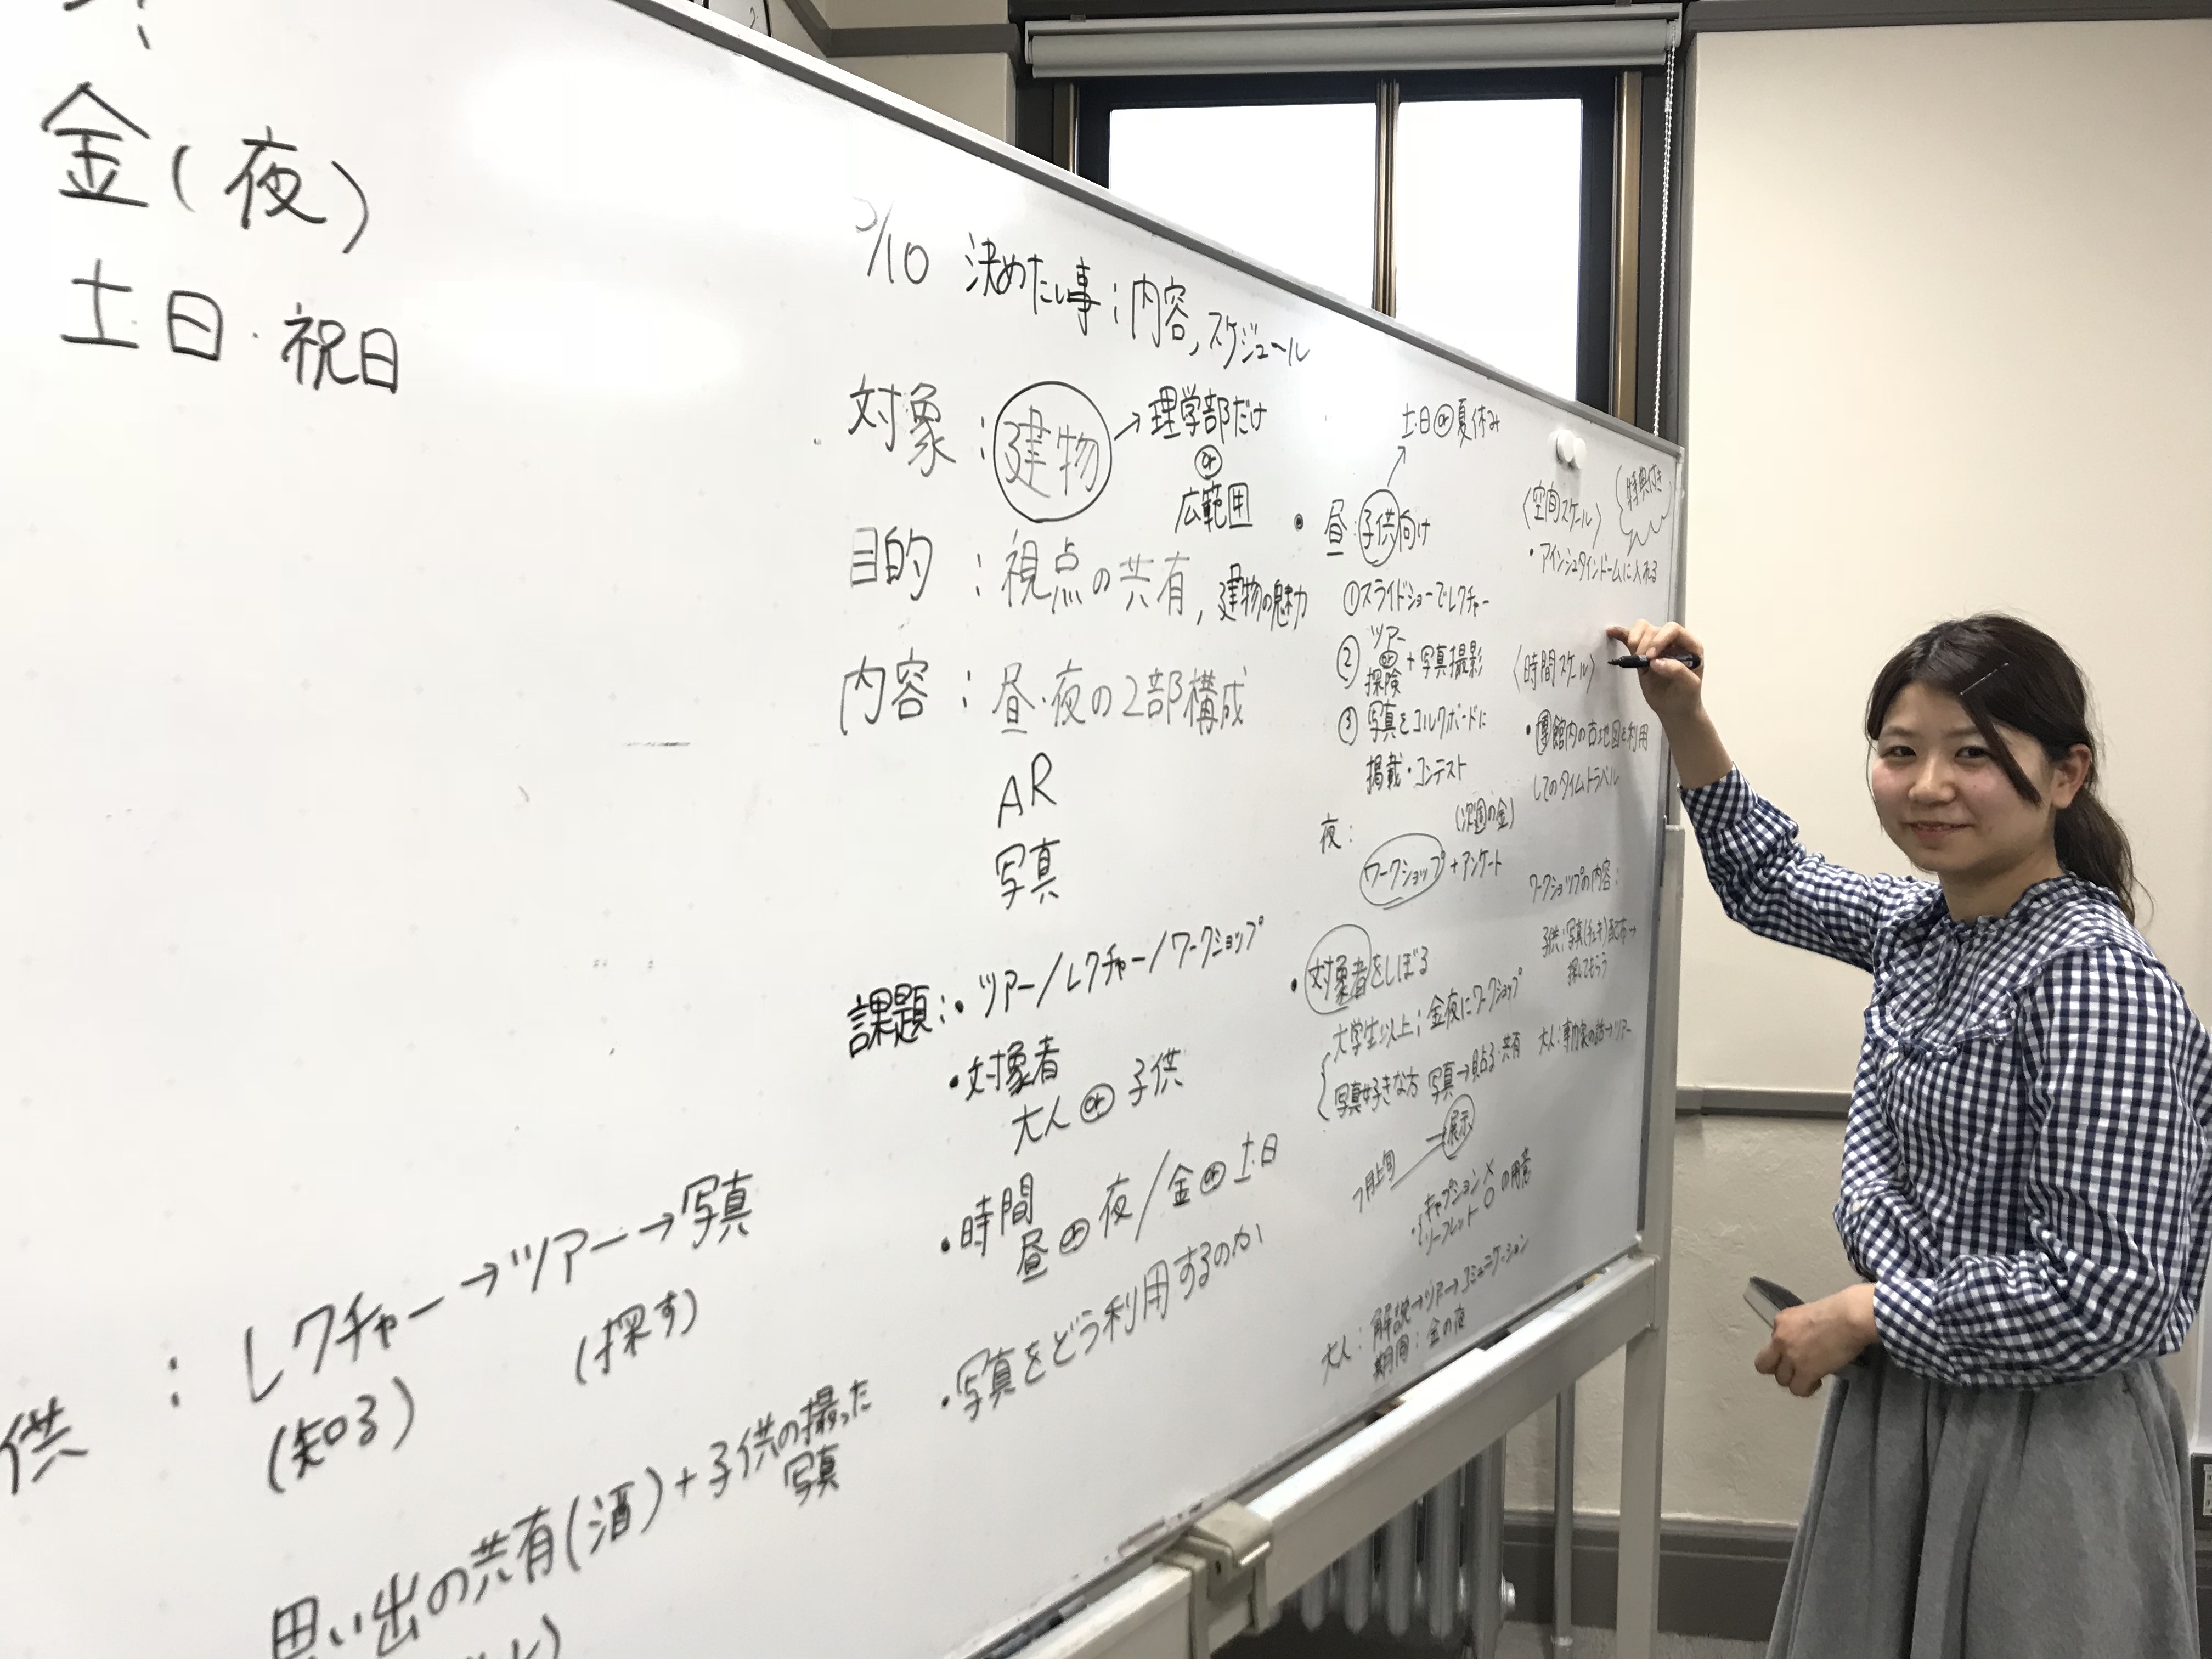 金(夜)
土・日・祝日
供 : レクチャー→ツアー→写真
(知る)
(探す)
思い出の共有(酒)+子供の撮った
写真
/10 決めたい事:内容,スケジュール
対象:建物→理学部だけ
or
広範囲
目的:視点の共有,建物の魅力
内容:昼・夜の2部構成
AR
写真
課題:・ツアー/レクチャー/ワークショップ
・対象者
大人 or 子供
・時間
昼 or 夜/金 or 土・日
・写真をどう利用するのか
土・日 or 夏休み
・昼:子供向け
①スライドショーでレクチャー
②ツアー or 探険+写真撮影
③写真をコルクボードに
掲載・コンテスト
夜:
(次週の金)
ワークショップ+アンケート
・対象者をしぼる
大学生以上;金夜にワークショップ
写真好きな方 写真→貼る・共有
→展示
7月上旬
・キャプション×
リーフレット○ の用意
大人:解説→ツアー→コミュニケーション
期間:金の夜
〈空間スケール〉
・アインシュタインドームに入れる
〈時間スケール〉
・博館内の古地図を利用
してのタイムトラベル
ワークショップの内容:
子供:写真(チェキ)配布→
探してもらう
大人: